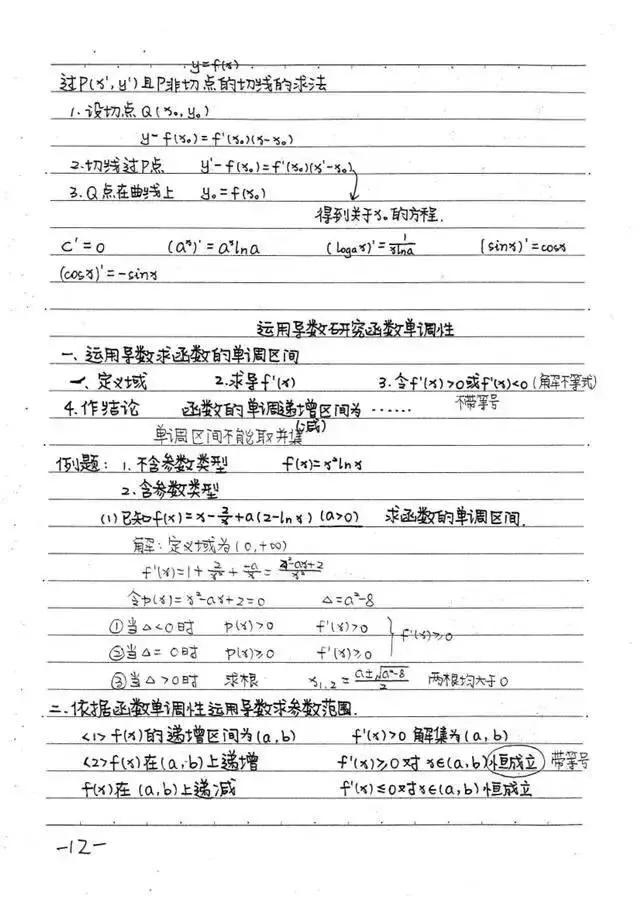 y=f(x)
过P(x',y')且P非切点的切线的求法
1.设切点Q(x₀,y₀)
y-f(x₀)=f'(x₀)(x-x₀)
2.切线过P点 y'-f(x₀)=f'(x₀)(x'-x₀)
3.Q点在曲线上 y₀=f(x₀)
得到关于x₀的方程.
C'=0 (aˣ)'=aˣlna (logₐx)'=1/(xlna) (sinx)'=cosx
(cosx)'=-sinx
运用导数研究函数单调性
一、运用导数求函数的单调区间
1、定义域 2.求导f'(x) 3.令f'(x)>0或f'(x)<0(解不等式)
不带等号
4.作结论 函数的单调递增区间为……
(减)
单调区间不能取并集
例题: 1.不含参数类型 f(x)=x²lnx
2.含参数类型
(1)已知f(x)=x-2/x+a(2-lnx)(a>0) 求函数的单调区间.
解:定义域为(0,+∞)
f'(x)=1+2/x²+-a/x=(x²-ax+2)/x²
令p(x)=x²-ax+2=0 Δ=a²-8
①当Δ<0时 p(x)>0 f'(x)>0
②当Δ=0时 p(x)≥0 f'(x)≥0 } f'(x)≥0
③当Δ>0时 求根 x₁,₂=(a±√(a²-8))/2 两根均大于0
二.依据函数单调性运用导数求参数范围.
<1>f(x)的递增区间为(a,b) f'(x)>0解集为(a,b)
<2>f(x)在(a,b)上递增 f'(x)≥0对x∈(a,b)恒成立 带等号
f(x)在(a,b)上递减 f'(x)≤0对x∈(a,b)恒成立
-12-